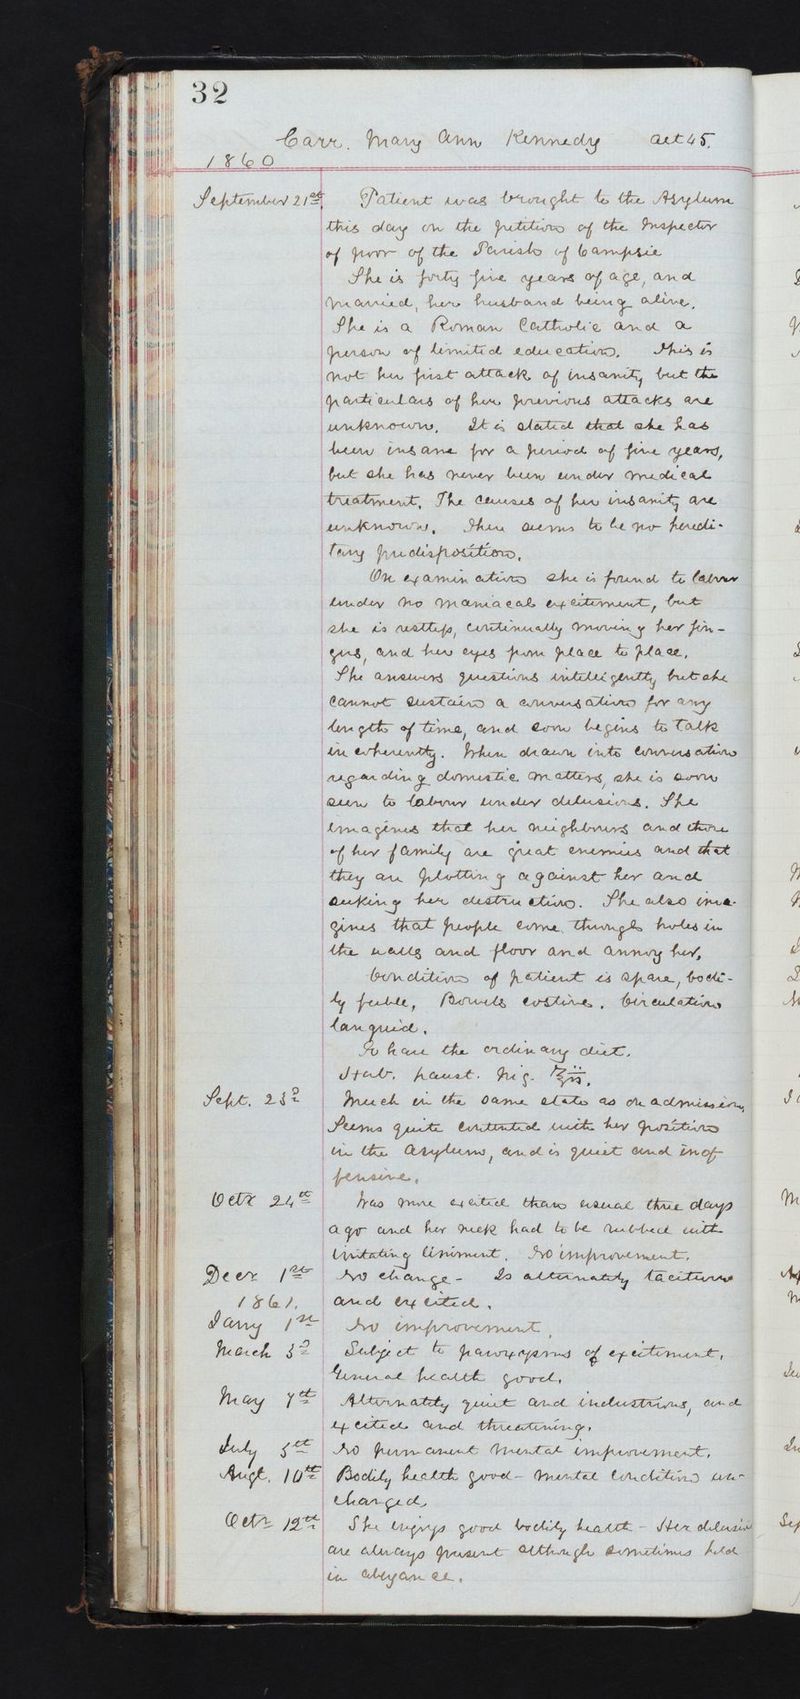 32
Carr. Mary Ann Kennedy aet 45.
1860
September 21st. Patient was brought to the Asylum
this day on the petition of the Inspector
of poor of the Parish of Campsie
She is forty five years of age, and
married, her husband being alive.
She is a Roman Catholic and a
person of limited education. This is
not her first attack of insanity but the
particulars of her previous attacks are
unknown. It is stated that she has
been insane for a period of five years,
but she has never been under medical
treatment. The causes of her insanity are
unknown. There seems to be no heredi-
tary predisposition.
On examination she is found to labour
under no maniacal excitement, but
she is restless, continually moving her fin-
gers, and her eyes from place to place.
She answers questions intelligently but she
cannot sustain a conversation for any
length of time, and soon begins to talk
incoherently. When drawn into conversation
regarding domestic matters, she is soon
seen to labour under delusions. She
imagines that her neighbours and those
of her family are great enemies and that
they are plotting against her and
seeking her destruction. She also ima-
gines that people come through holes in
the walls and floor and annoy her.
Condition of patient is spare, bodi-
ly feeble, Bowels costive. Circulation
languid.
To have the ordinary diet.
Hab. haust. nig.
Sept. 23d Much in the same state as on admission,
Seems quite contented with her position
in the Asylum, and is quiet and inof
fensive.
Octr 24th Was more excited than usual three days
ago and her neck had to be rubbed with
irritating liniment. No improvement.
Decr 1st No change - Is alternately taciturn
1861. and excited.
Jany 1st No improvement.
March 3d Subject to paroxysms of excitement.
General health good.
May 7th Alternately quiet and industrious, and
excited and threatening.
July 5th No permanent mental improvement.
Augt. 10th Bodily health good - mental condition un-
changed.
Octr 12th She enjoys good bodily health - Her delusions
are always present although sometimes held
in abeyance.